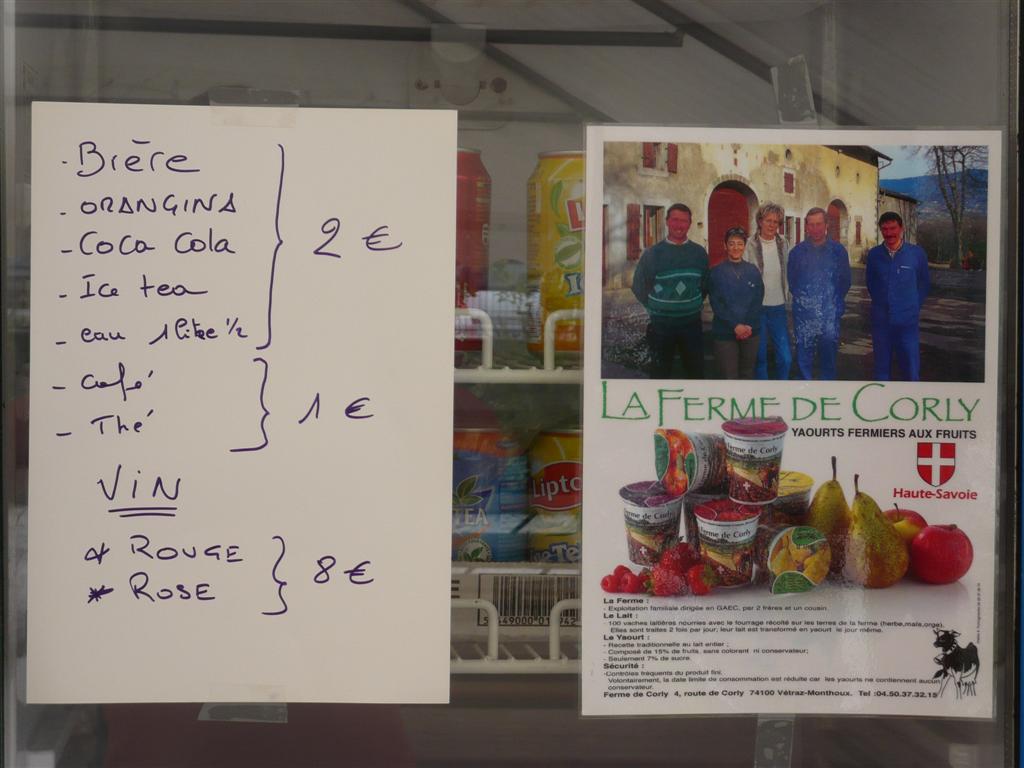 - Bière
- ORANGINA
- Coca Cola
- Ice tea
- eau 1 litre 1/2
2 €
- Café
- Thé
1 €
VIN
* ROUGE
* ROSE
8 €
TEA
Lipto
LA FERME DE CORLY
YAOURTS FERMIERS AUX FRUITS
Haute-Savoie
Ferme de Corly
Ferme de Corly
Ferme de Corly
La Ferme :
- Exploitation familiale dirigée en GAEC, par 2 frères et un cousin.
Le Lait :
- 100 vaches laitières nourries avec le fourrage récolté sur les terres de la ferme (herbe,maïs,orge).
Elles sont traites 2 fois par jour; leur lait est transformé en yaourt le jour même.
Le Yaourt :
- Recette traditionnelle au lait entier ;
- Composé de 15% de fruits, sans colorant ni conservateur;
- Seulement 7% de sucre.
Sécurité :
-Contrôles fréquents du produit fini.
Volontairement, la date limite de consommation est réduite car les yaourts ne contiennent aucun
conservateur.
Ferme de Corly 4, route de Corly 74100 Vétraz-Monthoux. Tel :04.50.37.32.15